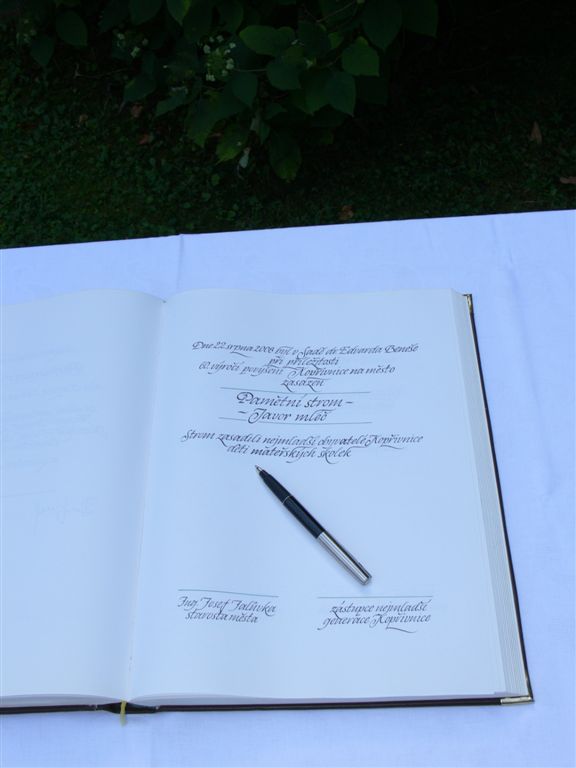 Dne 22. srpna 2008 byl v Sadě dr. Edvarda Beneše
při příležitosti
60. výročí povýšení Kopřivnice na město
zasazen
Pamětní strom –
– Javor mléč
Strom zasadili nejmladší obyvatelé Kopřivnice
děti mateřských školek
Ing. Josef Jalůvka
starosta města
zástupce nejmladší
generace Kopřivnice